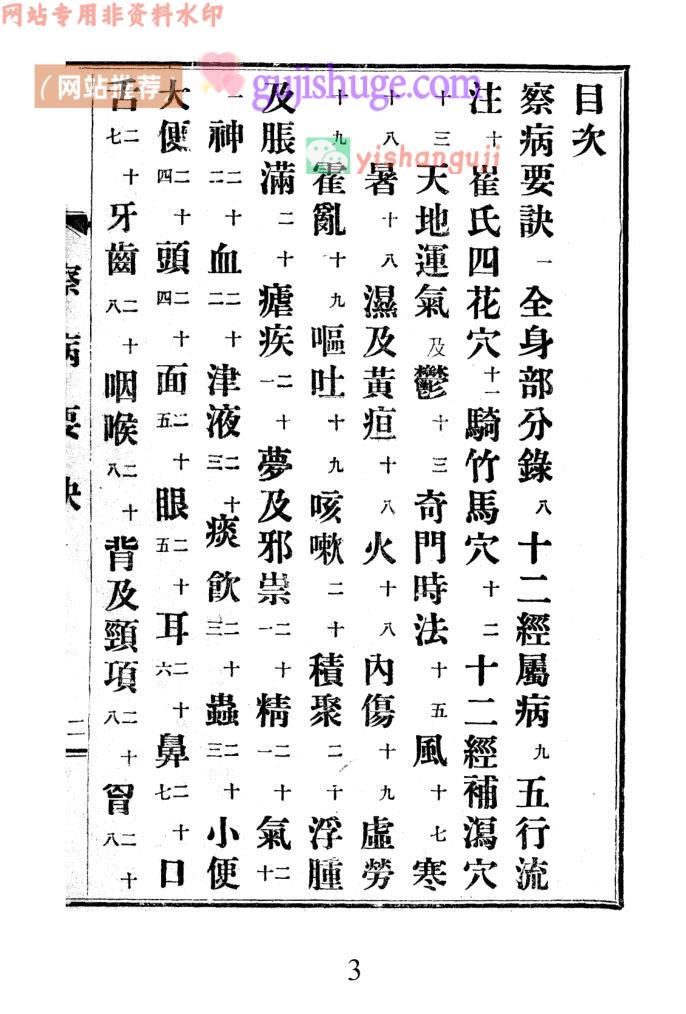 网站专用非资料水印
(网站推荐)
gujishuge.com
yishanguji
目次
察病要訣 一 全身部分錄 八 十二經屬病 九 五行流
注 十 崔氏四花穴 十一 騎竹馬穴 十二 十二經補瀉穴
十三 天地運氣及鬱 十三 奇門時法 十五 風 十七 寒
十八 暑 十八 濕及黃疸 十八 火 十八 內傷 十九 虛勞
十九 霍亂 十九 嘔吐 十九 咳嗽 二十 積聚 二十 浮腫
及脹滿 二十 瘧疾 二十一 夢及邪祟 二十一 精 二十一 氣 二十
一 神 二十二 血 二十二 津液 二十三 痰飲 二十三 蟲 二十三 小便
大便 二十四 頭 二十四 面 二十五 眼 二十五 耳 二十六 鼻 二十七 口
舌 二十七 牙齒 二十八 咽喉 二十八 背及頸項 二十八 胷 二十八
察病要訣
二
3